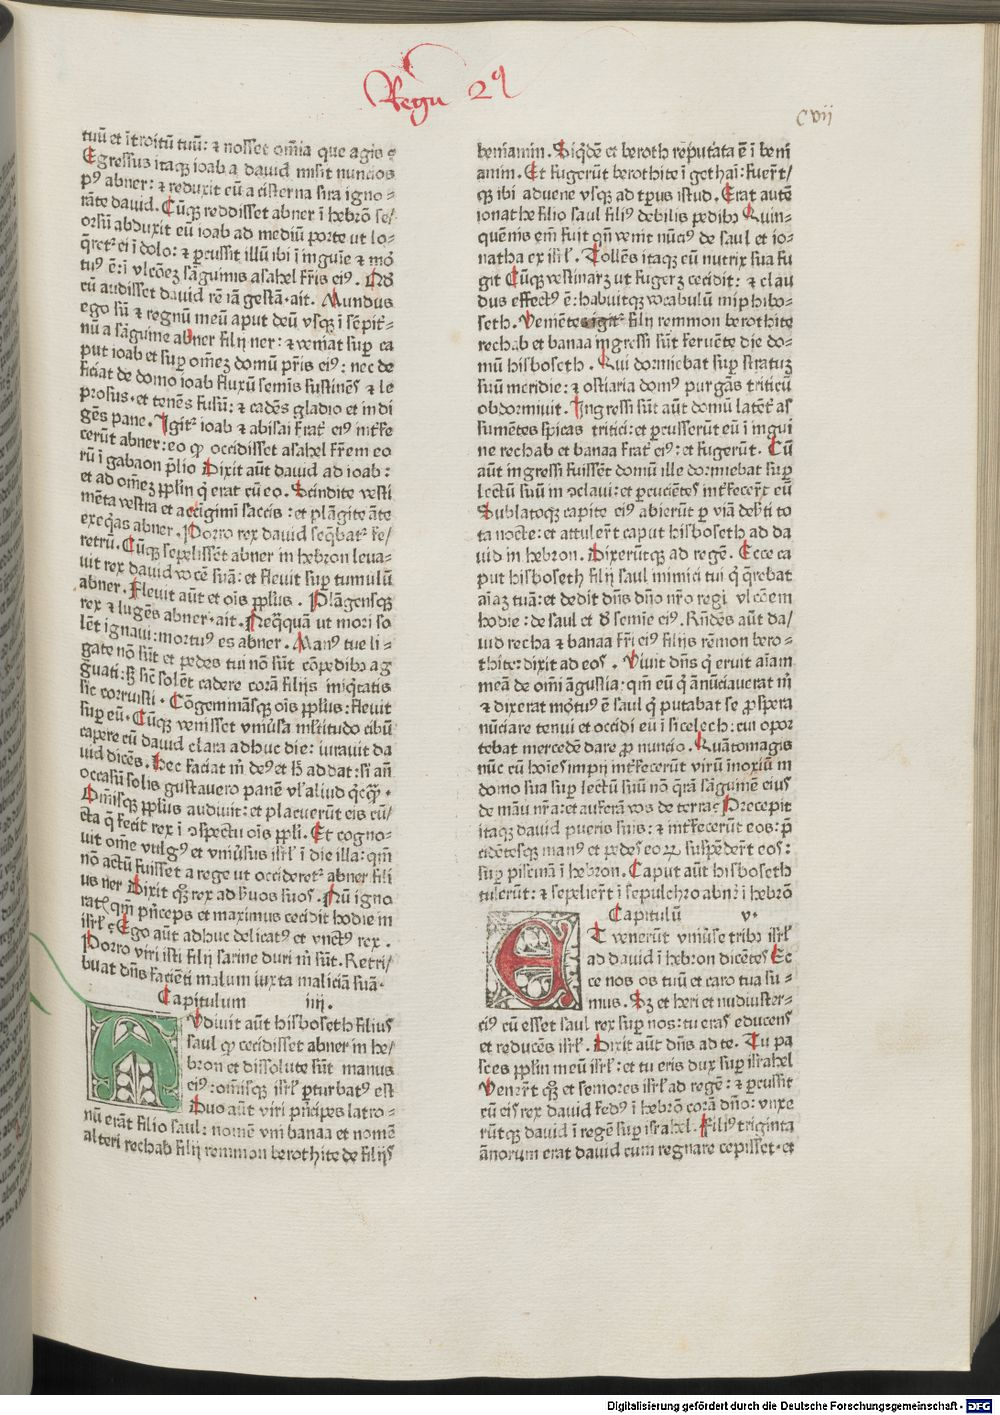 Regū 2⁹
cvii
tuū et ītroitū tuū: ⁊ nosset om̄ia que agis ⸵
Egressus itaqꝫ ioab a dauid misit nuncios
p⁹ abner: ⁊ reduxit eū a cisterna sira igno⸗
rāte dauid. Cūqꝫ reddisset abner ī hebrō se/
orsū abduxit eū ioab ad mediū porte ut lo⸗
q̄ret᷑ ei ī dolo: ⁊ ꝑcussit illū ibi ī inguīe ⁊ mor
tu⁹ ē: ī vlcōeꝫ sāguinis asahel fr̄is ei⁹. Qd̓
cū audisset dauid rē iā gestā· ait. Mundus
ego sū ⁊ regnū meū aput deū vsqꝫ ī sēpit̄⸗
nū a sāguine abner filij ner: ⁊ veniat suꝑ ca
put ioab et suꝑ om̄eꝫ domū pr̄is ei⁹: nec de
ficiat de domo ioab fluxū semīs sustinēs ⁊ le
prosus· et tenēs fusū: ⁊ cadēs gladio et indi
gēs pane. Igit᷑ ioab ⁊ abisai frat̄ ei⁹ int̄fe
cerūt abner: eo ꝙ occidisset asahel fr̄em eo
rū ī gabaon p̄lio Dixit aūt dauid ad ioab:
et ad om̄eꝫ pp̄lm q̄ erat cū eo. Scindite vesti
mēta vestra et accigimī saccis: et plāgite āte
exeq̄as abner. Porro rex dauid seq̄bat᷑ fe/
retrū. Cūqꝫ sepelissēt abner in hebron leua⸗
uit rex dauid vocē suā: et fleuit suꝑ tumulū
abner. Fleuit aūt et oīs pp̄lus. Plāgensqꝫ
rex ⁊ lugēs abner· ait. Neq̄quā ut mori so
lēt ignaui: mortu⁹ es abner. Man⁹ tue li⸗
gate nō sūt et pedes tui nō sūt cōpedibꝫ ag
g̈uati: sꝫ sic̄ solēt cadere corā filijs iniq̄tatis
sic corruisti. Cōgemināsqꝫ oīs pp̄lus: fleuit
suꝑ eū. Cūqꝫ venisset vniūsa ml̄titudo cibū
capere cū dauid clara adhuc die: iurauit da
uid dicēs. Hec faciat m̄ de⁹ et h̄ addat: si an̄
occasū solis gustauero panē vl̓ aliud q̄cq̄ꝫ.
Om̄isqꝫ pp̄lus audiuit: et placuerūt eis cū/
cta q̄ fecit rex ī ꝯspectu oīs pp̄li. Et cogno⸗
uit om̄e vulg⁹ et vniūsus isrl̓ ī die illa: qm̄
nō actū fuisset a rege ut occideret᷑ abner fili
us ner Dixit qꝫ rex ad ẜuos suos. Nū igno
rat⁊ qm̄ pn̄ceps et maximus cecidit hodie in
isrl̓ ⸵ Ego aūt adhuc delicat⁹ et vnct⁹ rex.
Porro viri isti filij saruie duri m̄ sūt. Retri/
buat dn̄s faciēti malum iuxta maliciā suā·
Capitulum iiij.
Audiuit aūt hisboseth filius
saul ꝙ cecidisset abner in he/
bron et dissolute sūt manus
ei⁹: om̄isqꝫ isrl̓ ꝑturbat⁹ est
Duo aūt viri pn̄cipes latro⸗
nū erāt filio saul: nomē vni banaa et nomē
alteri rechab filij remmon berothite de filijs
beniamin. Siq̄dē et beroth reputata ē ī beni
amin. Et fugerūt berothite ī gethai: fuerūt/
qꝫ ibi aduene vsqꝫ ad tp̄us istud. Erat autē
ionathe filio saul fili⁹ debilis pedibꝫ Quin⸗
quēnis em̄ fuit qn̄ venit nūci⁹ de saul et io⸗
natha ex isrl̓. Tollēs itaqꝫ eū nutrix sua fu
git Cūqꝫ vestinarꝫ ut fugerꝫ cecidit: ⁊ clau
dus effect⁹ ē: habuitqꝫ vocabulū miphibo⸗
seth. Veniētes igit᷑ filij remmon berothite
rechab et banaa ingressi sūt feruēte die do⸗
mū hisboseth. Qui dormiebat suꝑ stratuꝫ
suū meridie: ⁊ ostiaria dom⁹ purgās triticū
obdormiuit. Ingressi sūt aūt domū latent̄ as
sumētes spicas tritici: et ꝑcusserūt eū ī ingui
ne rechab et banaa frat̄ ei⁹: et fugerūt. Cū
aūt ingressi fuissēt domū ille dormiebat suꝑ
lectū suū in ꝯclaui: et ꝑcuciētes int̄fecer̄t eū
Sublatoqꝫ capite ei⁹ abierūt ꝑ viā deẜti to
ta nocte: et attuler̄t caput hisboseth ad da
uid in hebron. Dixerūtqꝫ ad regē. Ecce ca
put hisboseth filij saul inimici tui q̄ q̄rebat
aīaꝫ tuā: et dedit dn̄s dn̄o nr̄o regi vlcōem
hodie: de saul et d̓ semie ei⁹. Rn̄dēs aūt da/
uid recha ⁊ banaa fr̄i ei⁹ filijs rēmon bero⸗
thite: dixit ad eos. Viuit dn̄s q̄ eruit aīam
meā de om̄i āgustia: qm̄ eū q̄ ānūciauerat m̄
⁊ dixerat mortu⁹ ē saul q̄ putabat se ꝓspera
nūciare tenui et occidi eū ī sicelech: cui opor
tebat mercedē dare ꝓ nuncio. Quātomagis
nūc cū hoīes impij int̄fecerūt virū inoxiū in
domo sua suꝑ lectū suū nō q̄rā sāguinē eius
de māu nr̄a: et auferā vos de terra⸵ Precepit
itaqꝫ dauid pueris suis: ⁊ int̄fecerūt eos: p̄
cidētesqꝫ man⁹ et pedes eoꝝ suspēder̄t eos:
suꝑ piscinā ī hebron. Caput aūt hisboseth
tulerūt: ⁊ sepelier̄t ī sepulchro abn̄ ī hebrō
Capitulū v.
ET venerūt vniūse tribꝫ isrl̓
ad dauid ī hebron dicētes Ec
ce nos os tuū et caro tua su⸗
mus. Sꝫ et heri et nudiuster⸗
ci⁹ cū esset saul rex suꝑ nos: tu eras educens
et reducēs isrl̓. Dixit aūt dn̄s ad te. Tu pa
sces pp̄lm meū isrl̓: et tu eris dux suꝑ israhel
Vener̄t qꝫ et seniores isrl̓ ad regē: ⁊ ꝑcussit
cū eis rex dauid fed⁹ ī hebrō corā dn̄o: vnxe
rūtqꝫ dauid ī regē suꝑ israhel. Fili⁹ triginta
ānorum erat dauid cum regnare cepisset· et
Digitalisierung gefördert durch die Deutsche Forschungsgemeinschaft - DFG